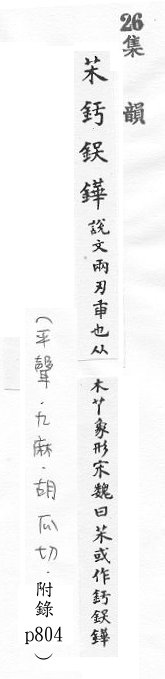 26集韻
茮釫鋘鏵說文兩刃臿也从
木丱象形宋魏曰茮或作釫鋘鏵
(平聲.九麻.胡瓜切.附錄p804)